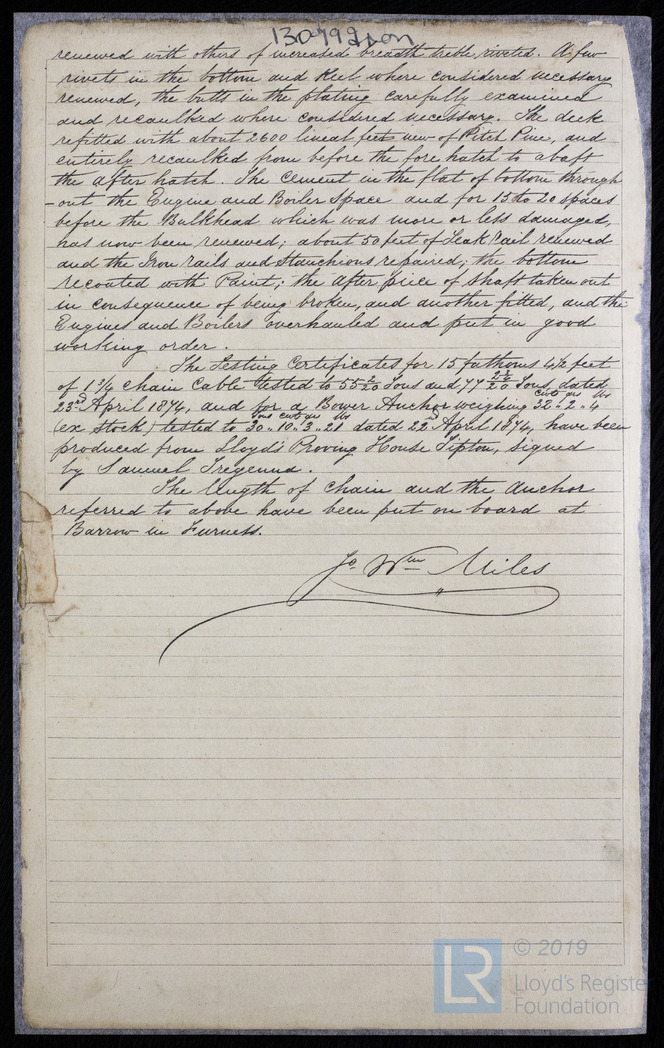 130792 Lon
renewed with others of increased breadth treble riveted. A few
rivets in the bottom and Keel where considered necessary
renewed, the butts in the plating carefully examined
and recaulked where considered necessary. The deck
refitted with about 2600 lineal feet new of Pitch Pine, and
entirely recaulked from before the fore hatch to abaft
the after hatch. The cement in the flat of bottom through
-out the Engine and Boiler Space and for 15 to 20 spaces
before the Bulkhead which was more or less damaged,
has now been renewed; about 50 feet of Teak Rail renewed
and the Iron rails and Stanchions repaired; the bottom
recoated with Paint; the after piece of Shaft taken out
in consequence of being broken, and another fitted, and the
Engines and Boilers overhauled and put in good
working order.
The Testing Certificates for 15 fathoms 4½ feet
of 1 3/4 Chain Cable tested to 55 2/20 Tons and 77 Tons, dated
23rd April 1874, and for a Bower Anchor weighing 32 cwts 2 qrs 4 lbs
(ex Stock) tested to 30 tons 10 cwts 3 qrs 21 lbs dated 22nd April 1874, have been
produced from Lloyd's Proving House Tipton, signed
by Samuel Tregenna.
The length of Chain and the Anchor
referred to above have been put on board at
Barrow in Furness.
Jo Wm Miles
© 2019
LR
Lloyd's Register
Foundation